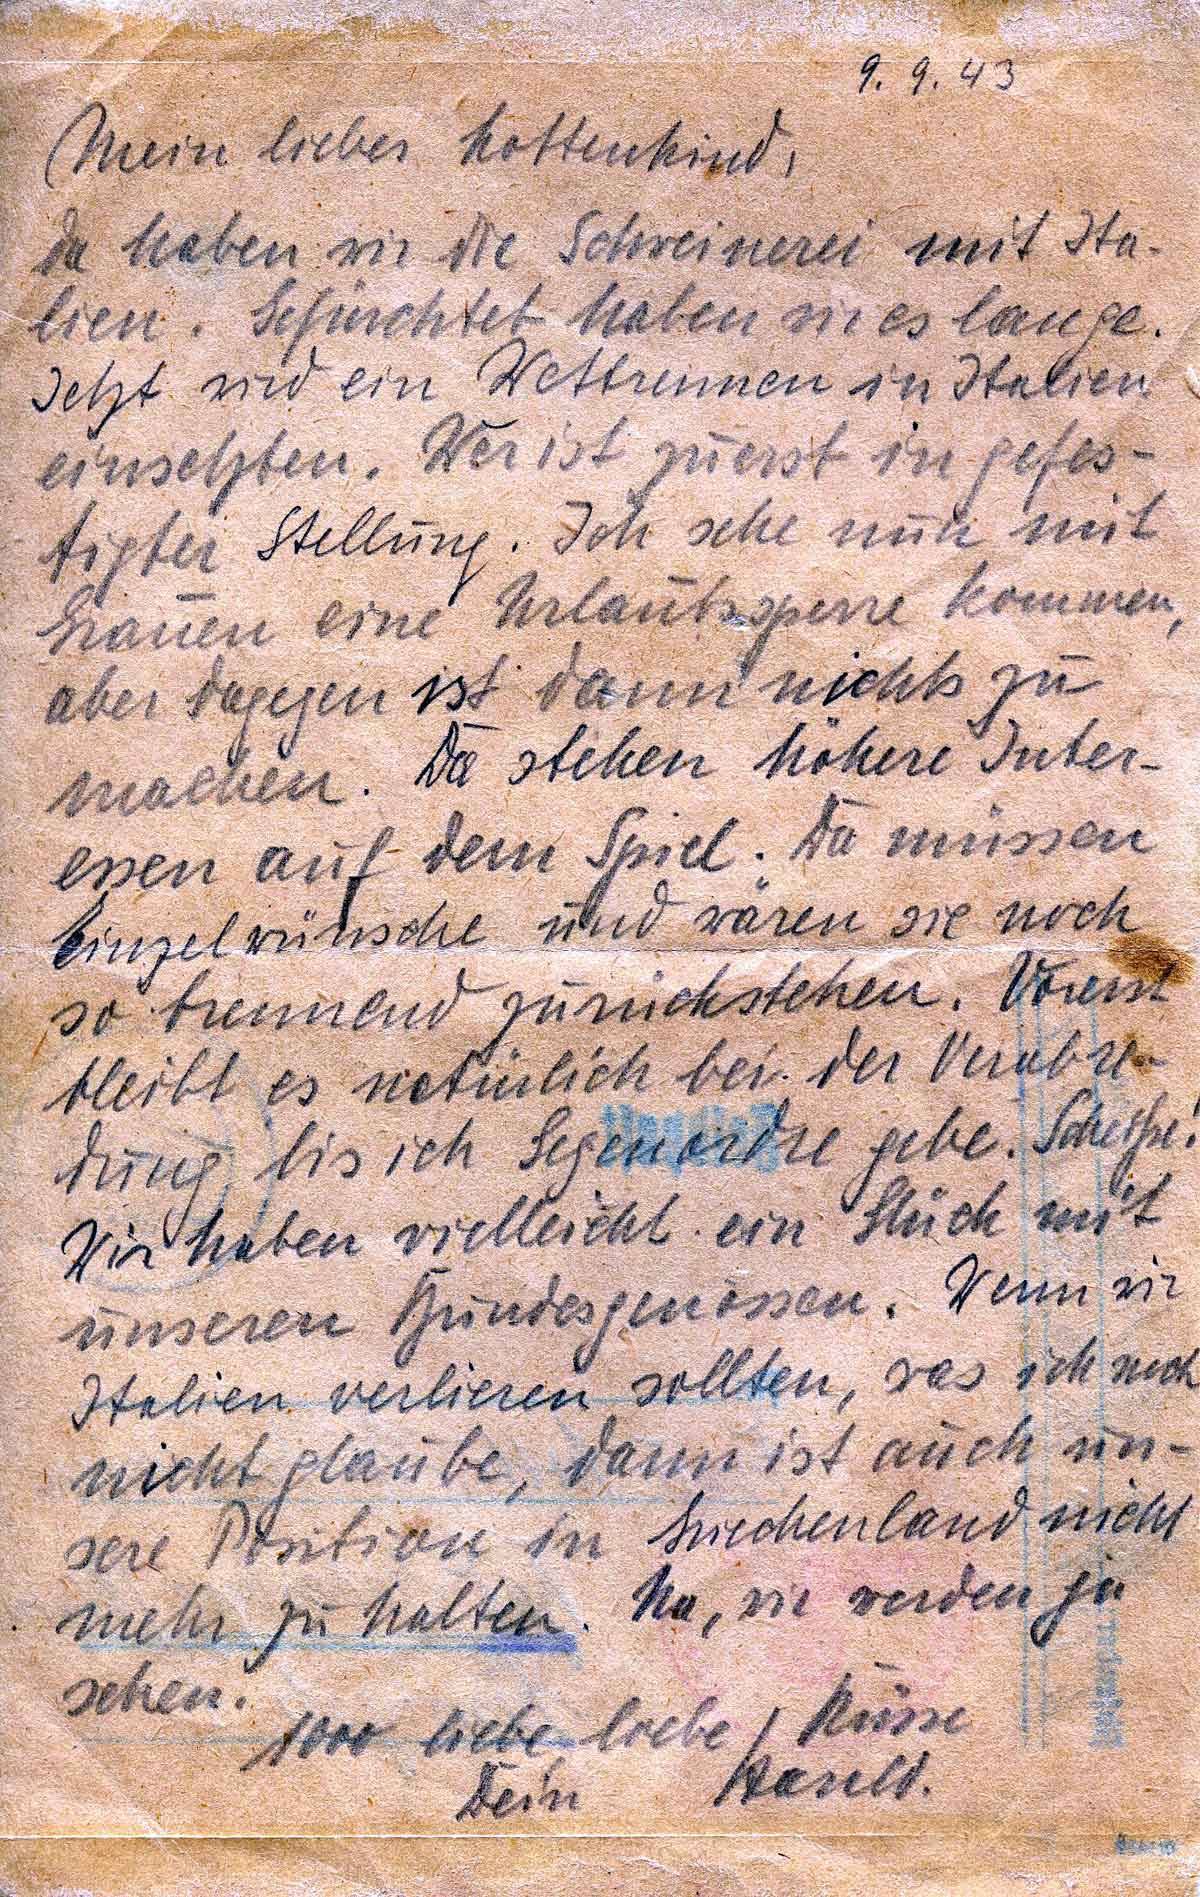 9. 9. 43
Mein liebes Mottenkind,
Da haben wir die Schweinerei mit Ita-
lien. Gefürchtet haben wir es lange.
Jetzt wird ein Wettrennen in Italien
einsetzten. Wer ist zuerst in gefes-
tigter Stellung. Ich sehe nun mit
Grauen eine Urlaubssperre kommen,
aber dagegen ist dann nichts zu
machen. Da stehen höhere Inter-
essen auf dem Spiel. Da müssen
Einzelwünsche und wären sie noch
so brennend zurückstehen. Vorerst
bleibt es natürlich bei der Verabre-
dung bis ich Gegenordre gebe. Scheiße!
Wir haben vielleicht ein Glück mit
unseren Bundesgenossen. Wenn wir
Italien verlieren sollten, was ich noch
nicht glaube, dann ist auch un-
sere Position in Griechenland nicht
mehr zu halten. Na, wir werden ja
sehen.
1000 liebe liebe Küsse
Dein